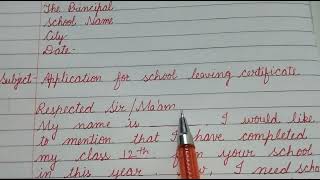 The Principal
School Name
City
Date-
Subject- Application for school leaving certificate
Respected Sir/Ma'am
My name is ... . I would like
to mention that I have completed
my class 12th from your school
in this year. Now, I need school